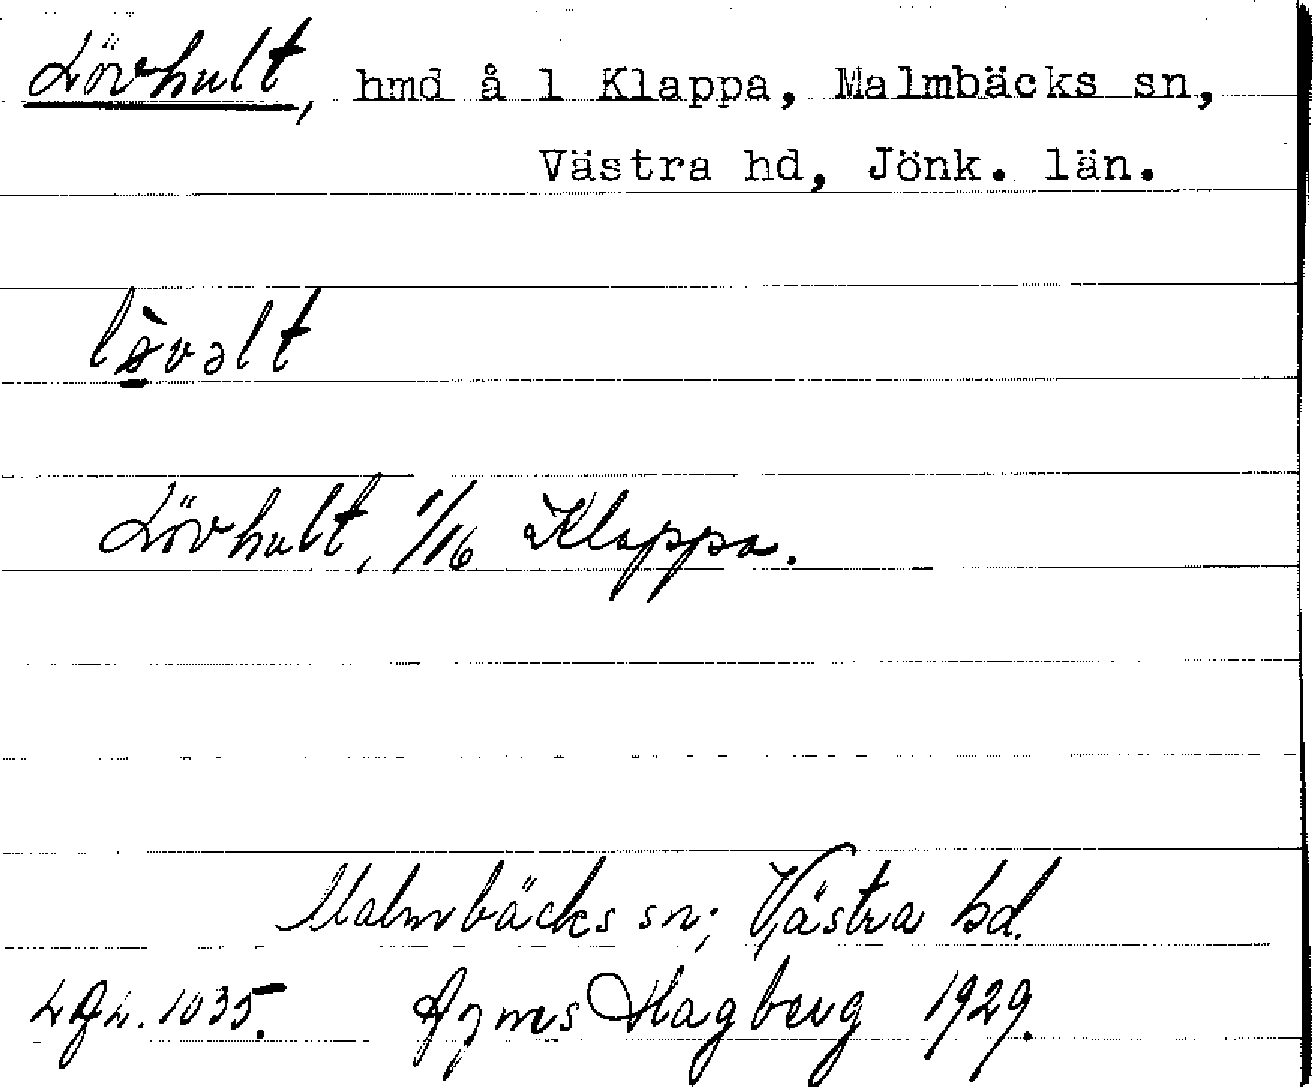 Lövhult, hmd å 1 Klappa, Malmbäcks sn,
Västra hd, Jönk. län.
lø̀vəlt
Lövhult, 1/16 Klappa.
Malmbäcks sn; Västra hd.
1035. Agnes Hagberg 1929.